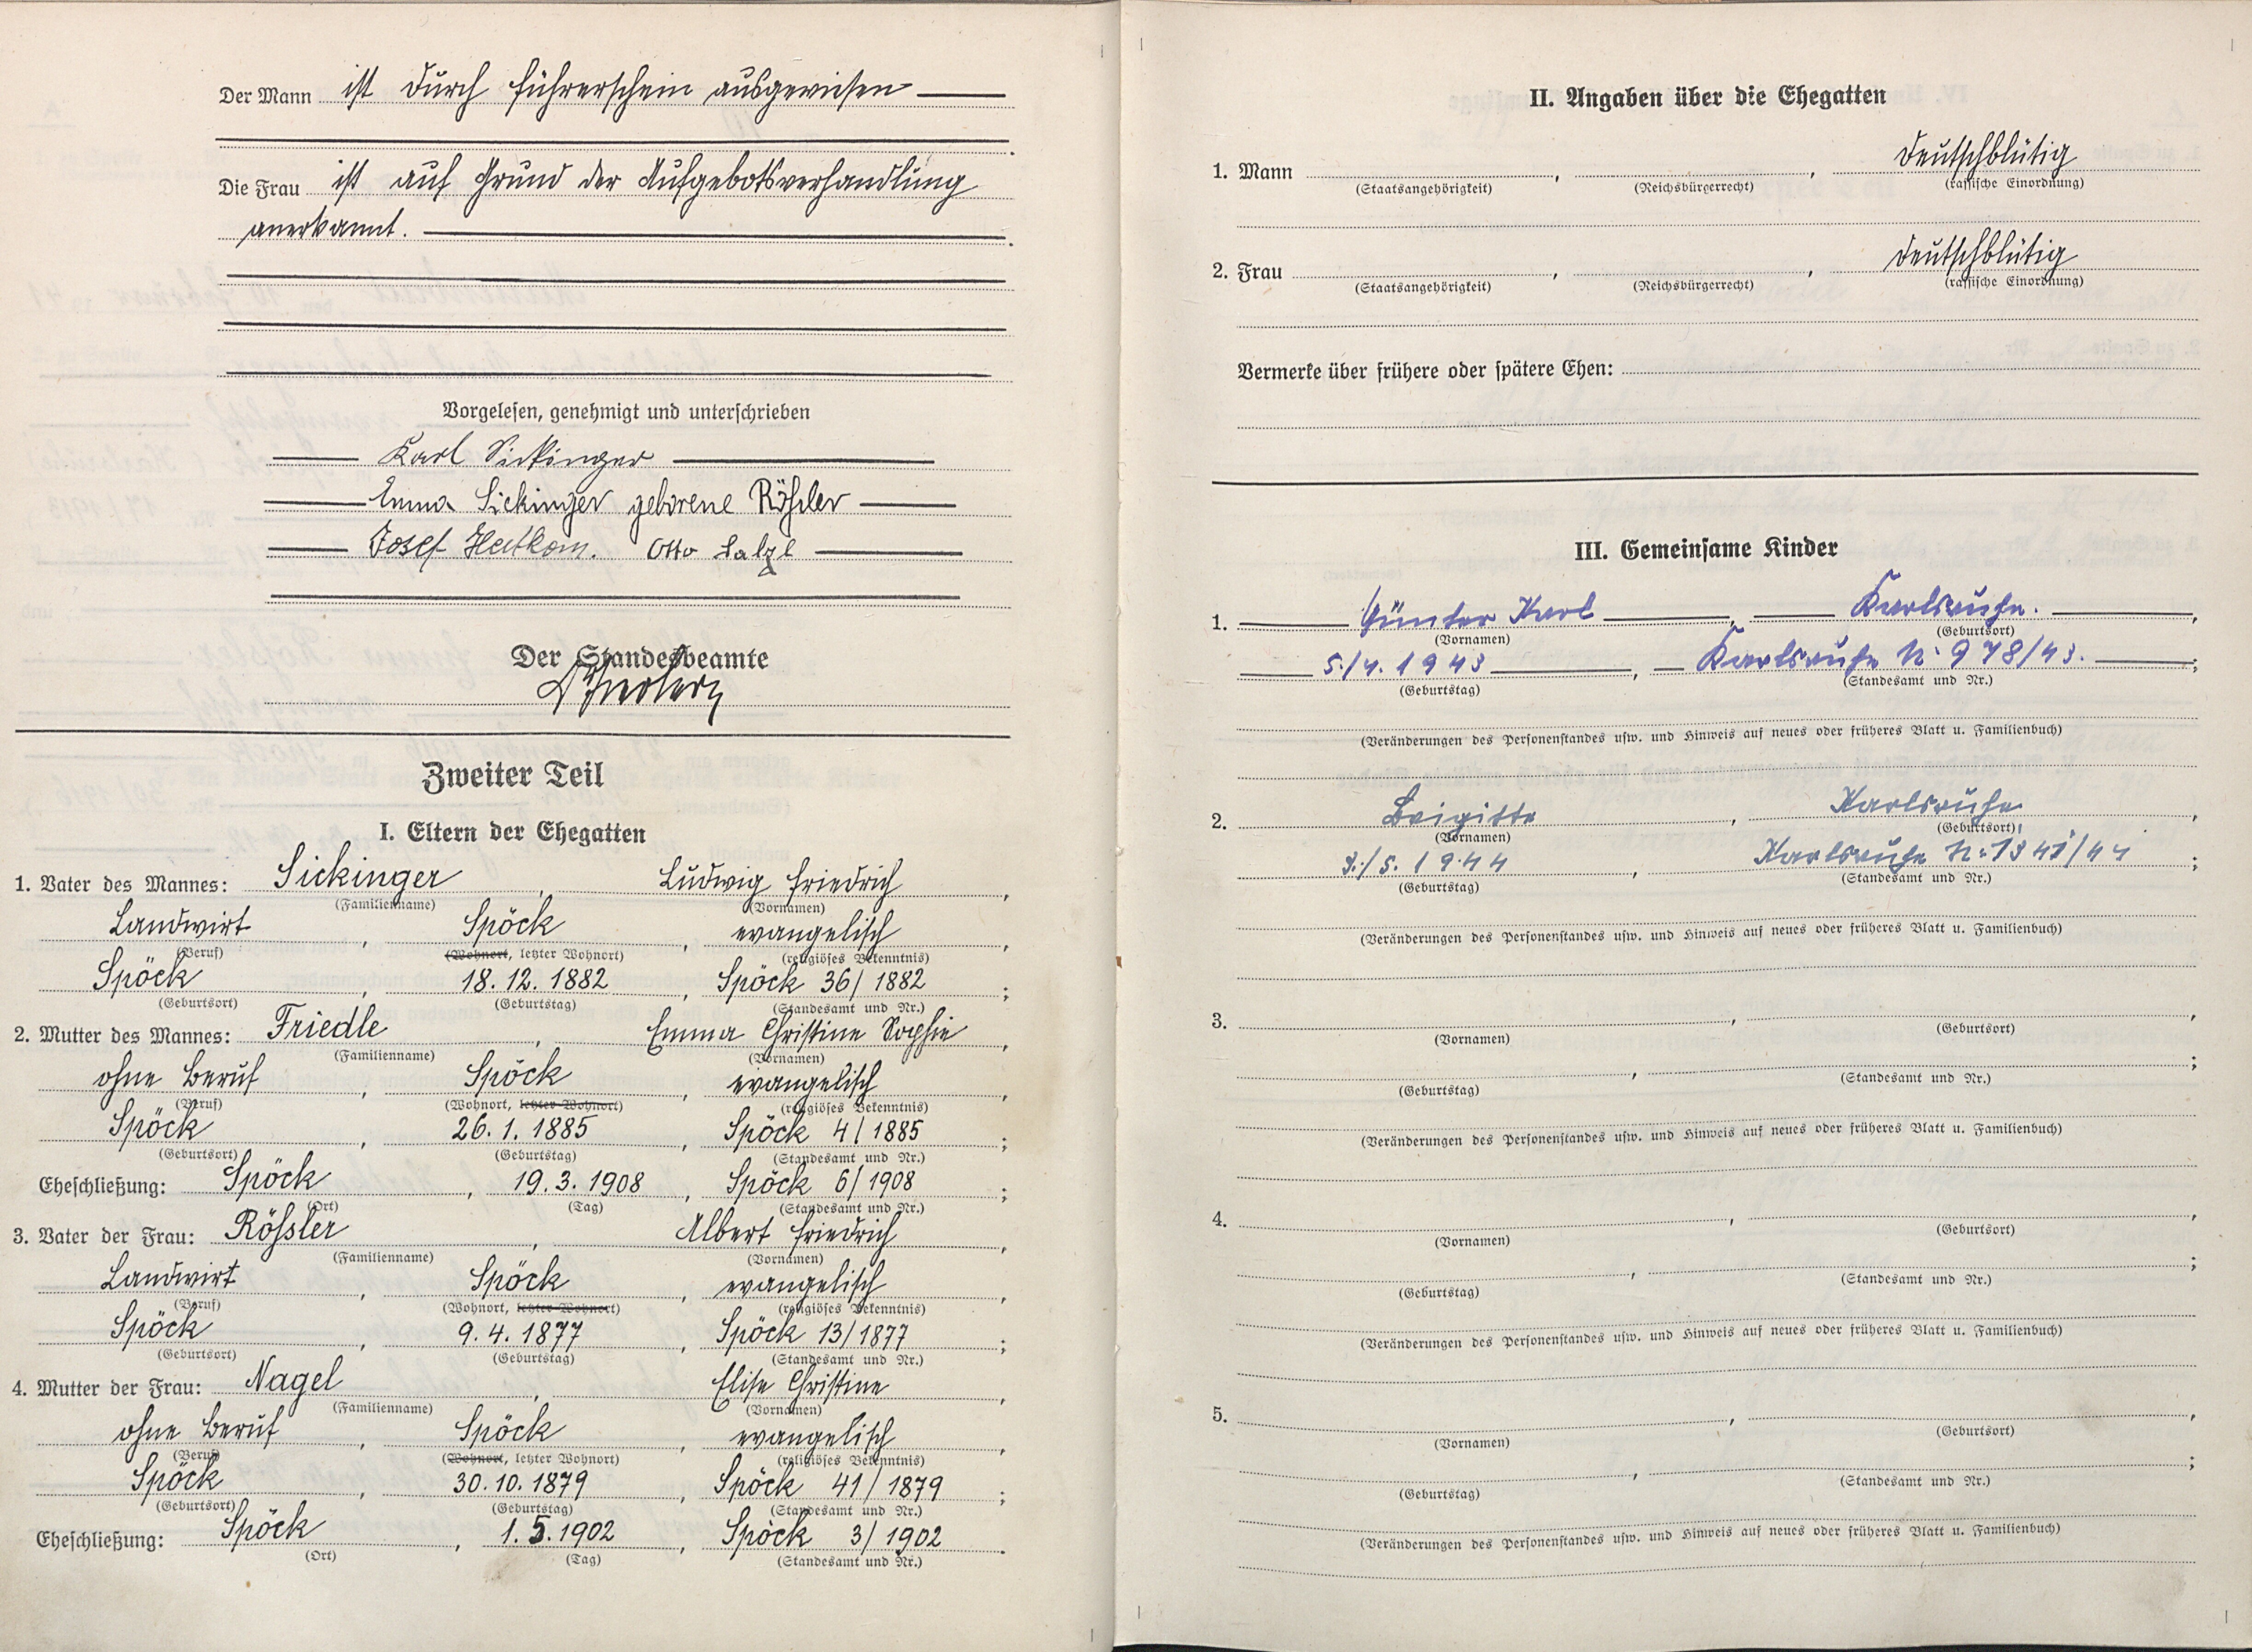 Der Mann ist durch Führerschein ausgewiesen
Die Frau ist auf Grund der Aufgebotsverhandlung
anerkannt.
Vorgelesen, genehmigt und unterschrieben
Karl Sickinger
Emma Sickinger geborene Rößler
Josef Otto
Der Standesbeamte
Zweiter Teil
I. Eltern der Ehegatten
1. Vater des Mannes: Sickinger, Ludwig Friedrich,
(Familienname) (Vornamen)
Landwirt, Spöck, evangelisch,
(Beruf) (Wohnort, letzter Wohnort) (religiöses Bekenntnis)
Spöck, 18.12.1882, Spöck 36/1882;
(Geburtsort) (Geburtstag) (Standesamt und Nr.)
2. Mutter des Mannes: Friedle, Emma Christine Sophie,
(Familienname) (Vornamen)
ohne Beruf, Spöck, evangelisch,
(Beruf) (Wohnort, letzter Wohnort) (religiöses Bekenntnis)
Spöck, 26.1.1885, Spöck 4/1885;
(Geburtsort) (Geburtstag) (Standesamt und Nr.)
Eheschließung: Spöck, 19.3.1908, Spöck 6/1908;
(Ort) (Tag) (Standesamt und Nr.)
3. Vater der Frau: Rößler, Albert Friedrich,
(Familienname) (Vornamen)
Landwirt, Spöck, evangelisch,
(Beruf) (Wohnort, letzter Wohnort) (religiöses Bekenntnis)
Spöck, 9.4.1877, Spöck 13/1877;
(Geburtsort) (Geburtstag) (Standesamt und Nr.)
4. Mutter der Frau: Nagel, Elise Christine,
(Familienname) (Vornamen)
ohne Beruf, Spöck, evangelisch,
(Beruf) (Wohnort, letzter Wohnort) (religiöses Bekenntnis)
Spöck, 30.10.1879, Spöck 41/1879;
(Geburtsort) (Geburtstag) (Standesamt und Nr.)
Eheschließung: Spöck, 1.5.1902, Spöck 3/1902.
(Ort) (Tag) (Standesamt und Nr.)
II. Angaben über die Ehegatten
1. Mann , , deutschblütig
(Staatsangehörigkeit) (Reichsbürgerrecht) (rassische Einordnung)
2. Frau , , deutschblütig
(Staatsangehörigkeit) (Reichsbürgerrecht) (rassische Einordnung)
Vermerke über frühere oder spätere Ehen:
III. Gemeinsame Kinder
1. Günter Karl, Karlsruhe.,
(Vornamen) (Geburtsort)
5./4. 1943, Karlsruhe N: 978/43.;
(Geburtstag) (Standesamt und Nr.)
(Veränderungen des Personenstandes usw. und Hinweis auf neues oder früheres Blatt u. Familienbuch)
2. Brigitte, Karlsruhe,
(Vornamen) (Geburtsort)
3./5. 1944, Karlsruhe N: 1341/44;
(Geburtstag) (Standesamt und Nr.)
(Veränderungen des Personenstandes usw. und Hinweis auf neues oder früheres Blatt u. Familienbuch)
3. , ,
(Vornamen) (Geburtsort)
, ;
(Geburtstag) (Standesamt und Nr.)
(Veränderungen des Personenstandes usw. und Hinweis auf neues oder früheres Blatt u. Familienbuch)
4. , ,
(Vornamen) (Geburtsort)
, ;
(Geburtstag) (Standesamt und Nr.)
(Veränderungen des Personenstandes usw. und Hinweis auf neues oder früheres Blatt u. Familienbuch)
5. , ,
(Vornamen) (Geburtsort)
, ;
(Geburtstag) (Standesamt und Nr.)
(Veränderungen des Personenstandes usw. und Hinweis auf neues oder früheres Blatt u. Familienbuch)